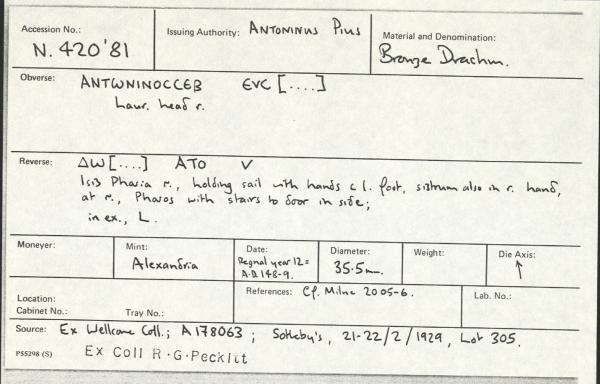 Accession No.: Issuing Authority: ANTONINUS PIUS Material and Denomination:
N. 420'81 Bronze Drachm.
Obverse: ANTWNINOCCEB EVC [....]
laur. head r.
Reverse: ΔW[....] ATO V
Isis Pharia r., holding sail with hands & l. foot, sistrum also in r. hand,
at r., Pharos with stairs to door in side;
in ex., L.
Moneyer: Mint: Date: Diameter: Weight: Die Axis:
Alexandria Regnal year 12 = 35.5mm. ↑
A.D. 148-9.
Location: References: Cf. Milne 2005-6. Lab. No.:
Cabinet No.: Tray No.:
Source: Ex Wellcome Coll.; A178063; Sotheby's, 21-22/2/1929, Lot 305.
PS5298 (S) Ex Coll R.G. Pecklitt